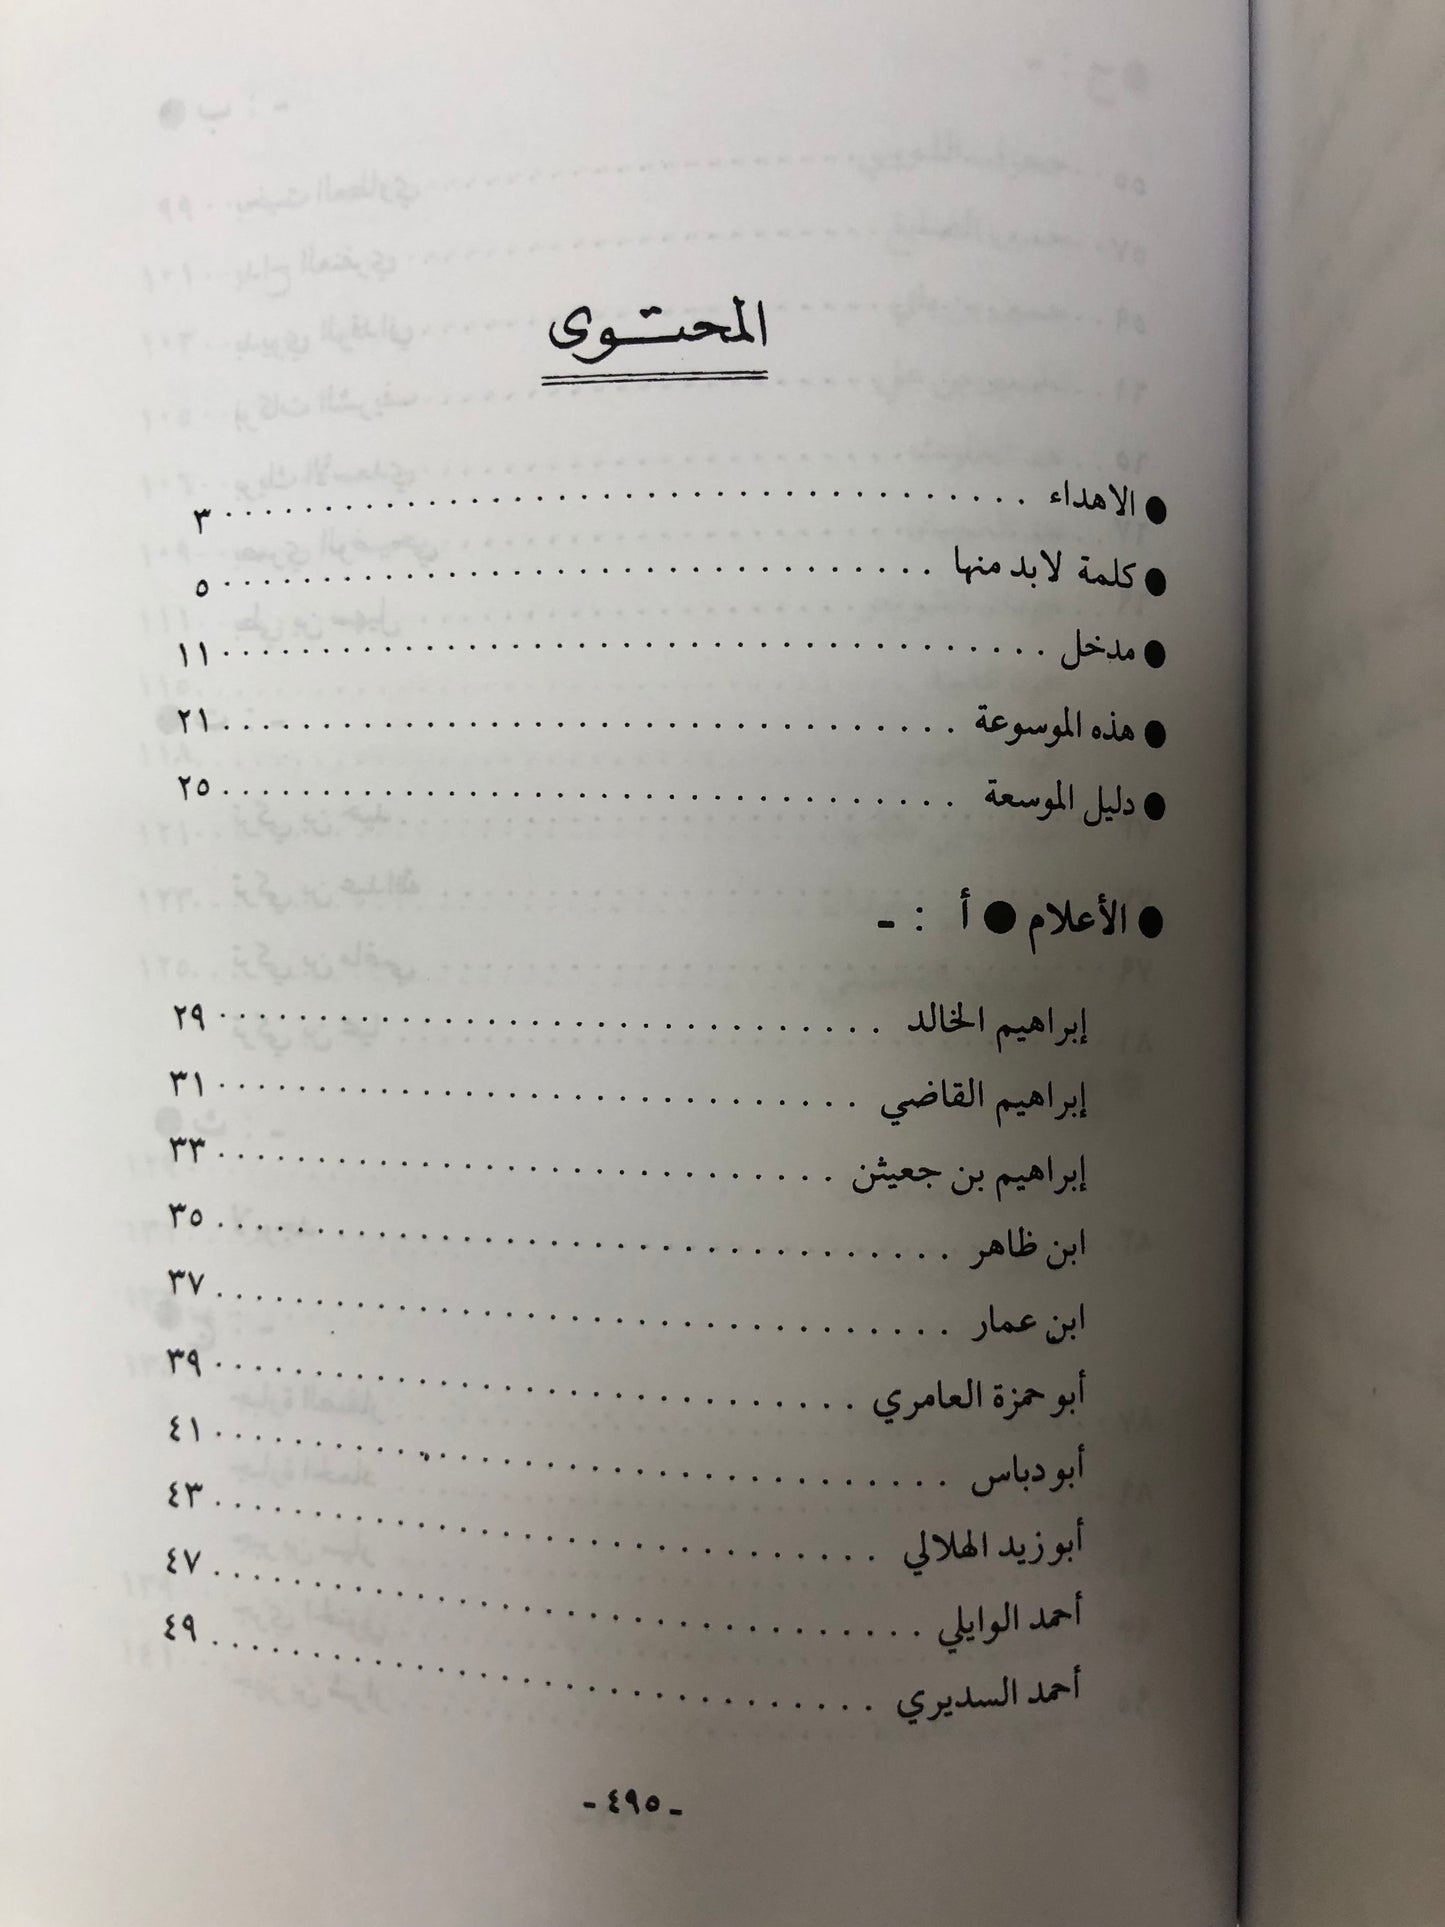 المحتوى
● الاهداء ........ ٣
● كلمة لابد منها ........ ٥
● مدخل ........ ١١
● هذه الموسوعة ........ ٢١
● دليل الموسعة ........ ٢٥
● الأعلام ● أ : -
إبراهيم الخالد ........ ٢٩
إبراهيم القاضي ........ ٣١
إبراهيم بن جعيثن ........ ٣٣
ابن ظاهر ........ ٣٥
ابن عمار ........ ٣٧
أبو حمزة العامري ........ ٣٩
أبو دباس ........ ٤١
أبو زيد الهلالي ........ ٤٣
أحمد الوايلي ........ ٤٧
أحمد السديري ........ ٤٩
- ٤٩٥ -